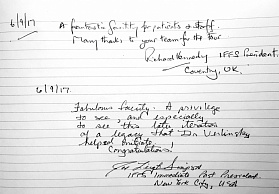 6/9/17
A fantastic facility for patients & staff.
Many thanks to your team for the tour
Richard Kennedy IFFS President.
Coventry, UK.
6/9/17.
Fabulous facility. A privilege
to see and especially
to see this late iteration
of a legacy that Dr Verlinsky
helped initiate,
Congratulations.
Joe Leigh Simpson
IFFS Immediate Past President
New York City, USA